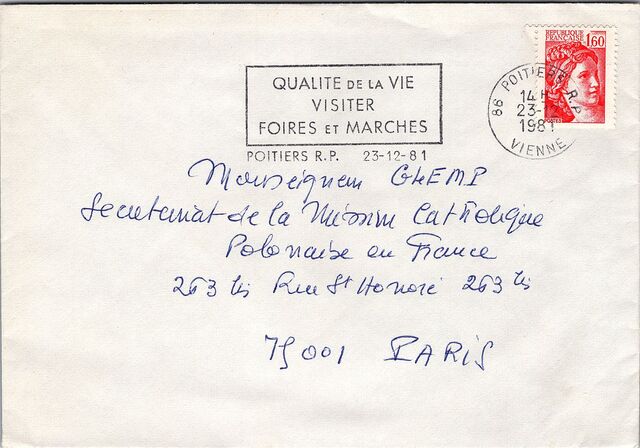 REPUBLIQUE
FRANCAISE
1,60
POSTES
86 POITIERS R.P.
14 H
23-12
1981
VIENNE
QUALITE DE LA VIE
VISITER
FOIRES ET MARCHES
POITIERS R.P. 23-12-81
Monseigneur GLEMP
Secretariat de la Mission Catholique
Polonaise en France
263 bis Rue St Honoré 263 bis
75001 PARIS